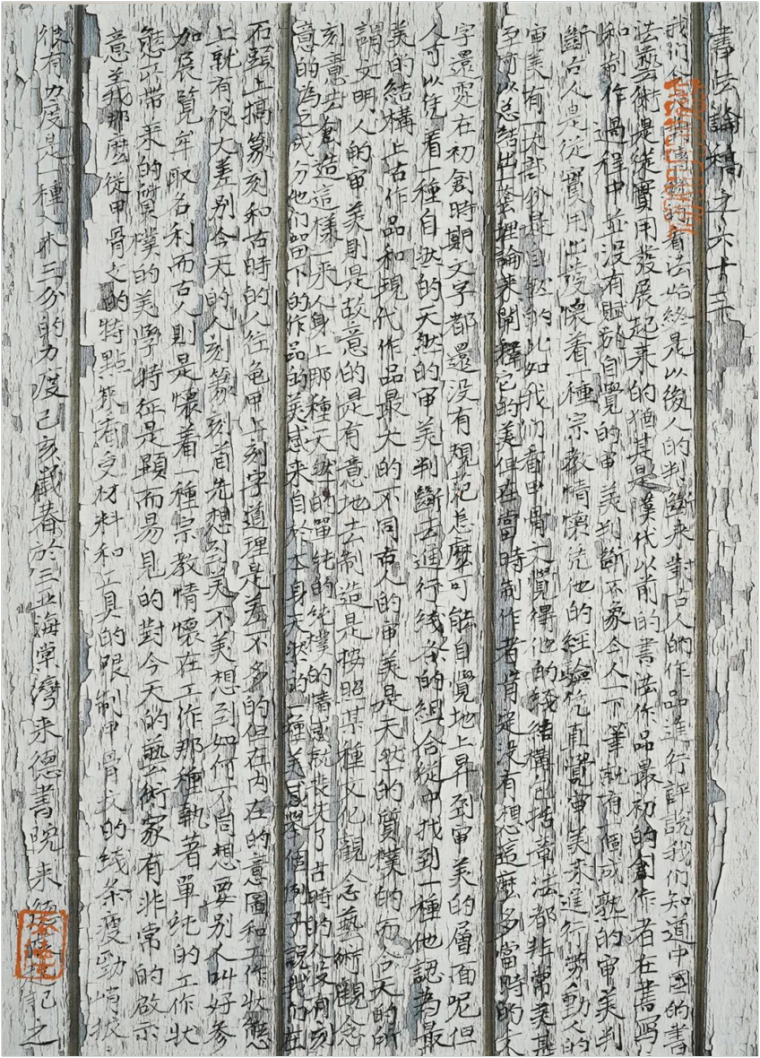 書法論稿之六十三
我们傳統的看法始终是以後人的判斷来對古人的作品進行評說我们知道中國的書
法藝術是從實用發展起来的猶其是漢代以前的書法作品最初的創作者在書写
和制作過程中並没有赋於自覺的审美判斷不象今人一下筆就有一個成熟的审美判
斷古人是從實用出發懷着一種宗教情懷凭他的經驗凭直覺审美来進行劳動人的
审美有一部份是自然的比如我们看甲骨文覺得他的线结構包括章法都非常美甚
至可以总结出一套理論来闡釋它的美但在當時制作者肯定没有想這麼多當時的文
字還處在初創時期文字都還没有規范怎麼可能自覺地上昇到审美的層面呢但
人可以凭着一種自然的天然的审美判斷去進行线条的組合從中找到一種他認為最
美的結構上古作品和現代作品最大的不同古人的审美是天然的質樸的而今天的所
謂文明人的审美則是故意的是有意地去制造是按照某種文化觀念藝術觀念
刻意去創造這樣一来人身上那種天然的單纯的纯樸的情感就丧失了古時的人没有刻
意的為之成分他们留下的作品的美感来自於本身天然的一種美感舉個例子説我们在
石頭上搞篆刻和古時的人在龟甲上刻字道理是差不多的但在内在的意圖和工作状態
上就有很大差别今天的人刻篆刻首先想到美不美想到如何不同想要别人叫好参
加展覧牟取名利而古人則是懷着一種宗教情懷在工作那種執著單纯的工作状
態所带来的質樸的美學特征是顯而易見的對今天的藝術家有非常的啟示
意義那麼從甲骨文的特點来看受材料和工具的限制甲骨文的线条瘦勁峭拔
很有力度是一種入木三分的力度己亥歲春於三亚海棠灣来德書院来德記之